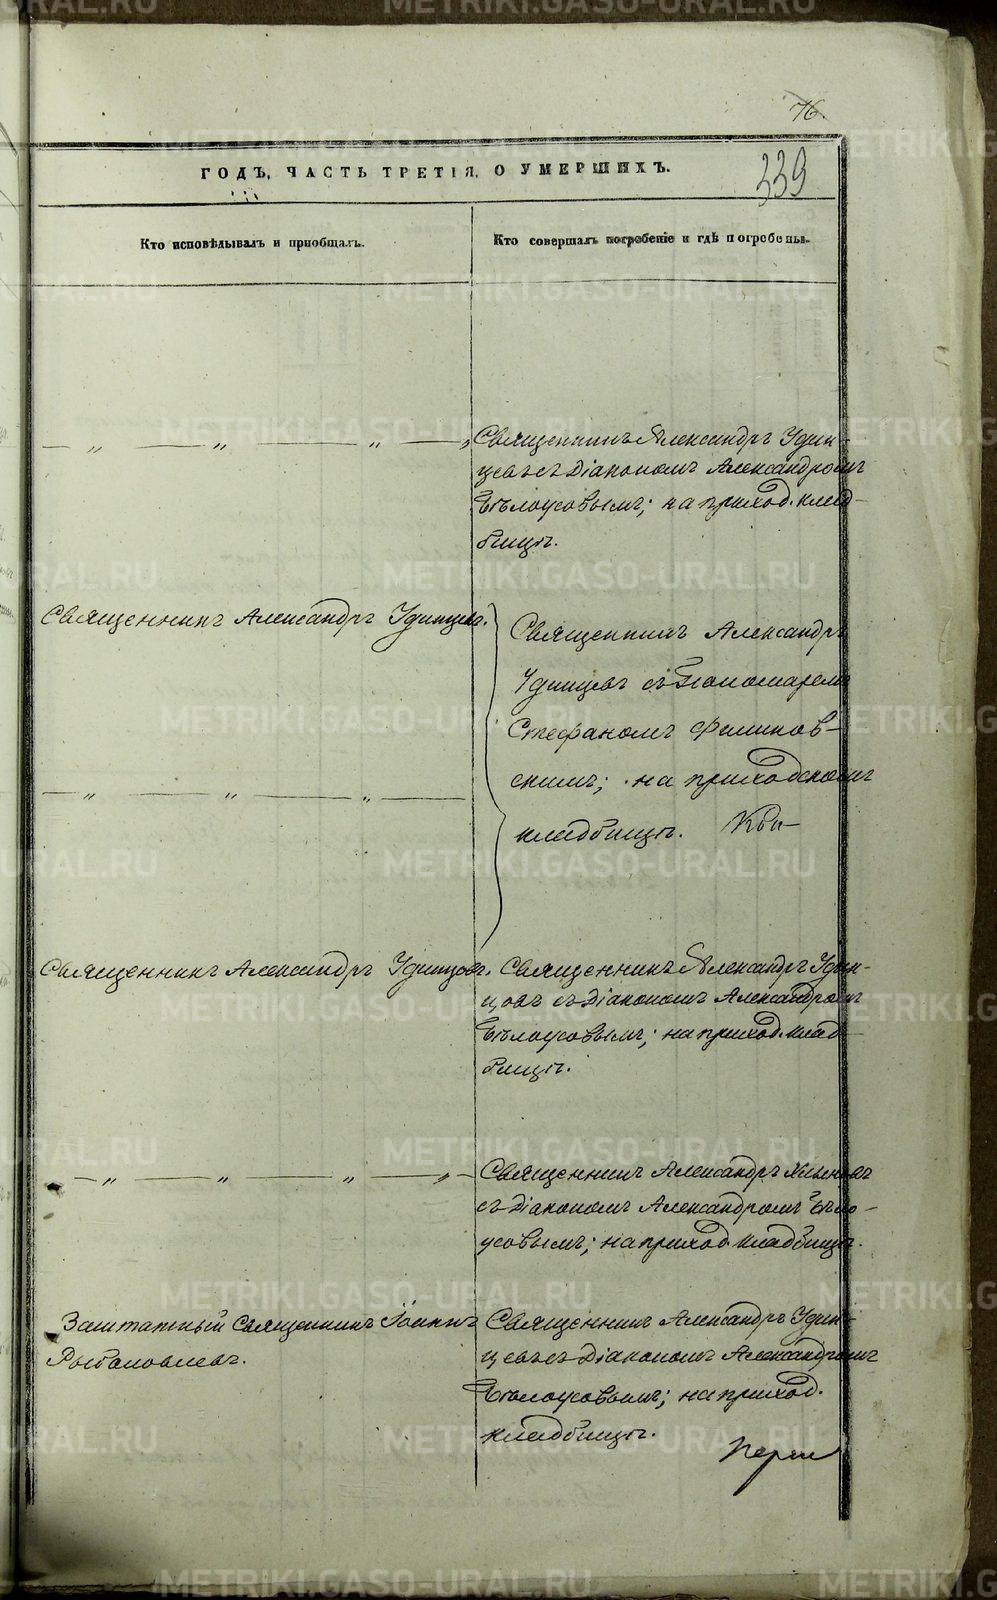 76.
339
ГОДЪ, ЧАСТЬ ТРЕТІЯ, О УМЕРШИХЪ.
Кто исповѣдывалъ и пріобщалъ.
Кто совершалъ погребеніе и гдѣ погребены.
— „ — „ — „ — „
Священникъ Александръ Удин-
цевъ съ Діакономъ Александромъ
Бѣлоусовымъ; на приход. клад-
бищѣ.
Священникъ Александръ Удинцевъ.
Священникъ Александръ
Удинцевъ съ Пономаремъ
Стефаномъ
скимъ; на приходскомъ
кладбищѣ.
— „ — „ — „ —
Священникъ Александръ Удинцовъ.
Священникъ Александръ Удин-
цовъ съ Діакономъ Александромъ
Бѣлоусовымъ; на приход. клад-
бищѣ.
— „ — „ — „ — „ —
Священникъ Александръ
съ Діакономъ Александромъ Бѣло-
усовымъ; на приход. кладбищѣ.
Заштатный Священникъ Іоаннъ
Рыболовлевъ.
Священникъ Александръ Удин-
цевъ съ Діакономъ Александромъ
Бѣлоусовымъ; на приход.
кладбищѣ.
METRIKI.GASO-URAL.RU